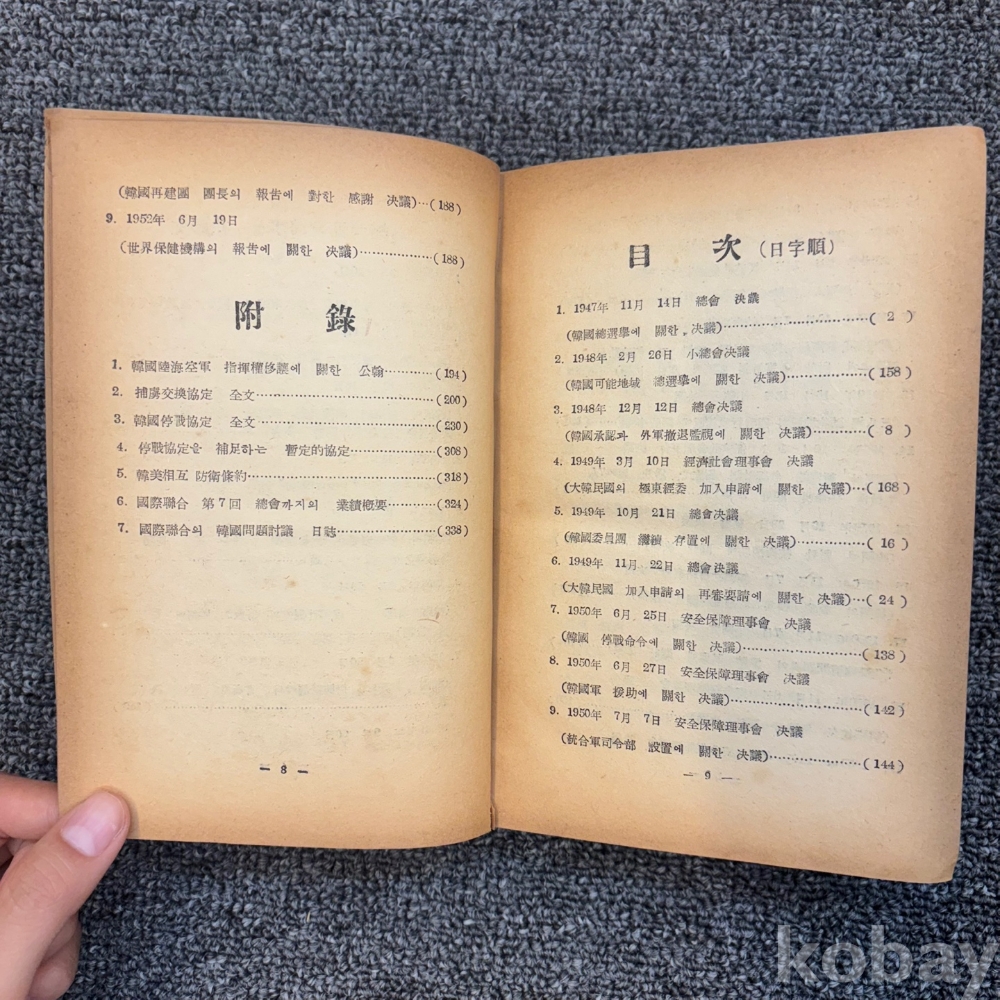 (韓國再建團 團長의 報告에 對한 感謝 决議)…(188)
9. 1952年 6月 19日
(世界保健機構의 報告에 關한 决議)………………(188)
附 錄
1. 韓國陸海空軍 指揮權移讓에 關한 公翰…………(194)
2. 捕虜交換協定 全文……………………………………(200)
3. 韓國停戰協定 全文……………………………………(230)
4. 停戰協定을 補足하는 暫定的協定…………………(308)
5. 韓美相互 防衛條約……………………………………(318)
6. 國際聯合 第7回 總會까지의 業績概要……………(324)
7. 國際聯合의 韓國問題討議 日誌……………………(338)
— 8 —
目 次 (日字順)
1. 1947年 11月 14日 總會 决議
(韓國總選擧에 關한 决議)……………………………( 2 )
2. 1948年 2月 26日 小總會决議
(韓國可能地域 總選擧에 關한 决議)………………(158)
3. 1948年 12月 12日 總會决議
(韓國承認과 外軍撤退監視에 關한 决議)…………( 8 )
4. 1949年 3月 10日 經濟社會理事會 决議
(大韓民國의 極東經委 加入申請에 關한 决議)…(168)
5. 1949年 10月 21日 總會决議
(韓國委員團 繼續 存置에 關한 决議)……………( 16 )
6. 1949年 11月 22日 總會决議
(大韓民國 加入申請의 再審要請에 關한 决議)…( 24 )
7. 1950年 6月 25日 安全保障理事會 决議
(韓國 停戰命令에 關한 决議)………………………(138)
8. 1950年 6月 27日 安全保障理事會 决議
(韓國軍 援助에 關한 决議)…………………………(142)
9. 1950年 7月 7日 安全保障理事會 决議
(統合軍司令部 設置에 關한 决議)…………………(144)
— 9 —
kobay